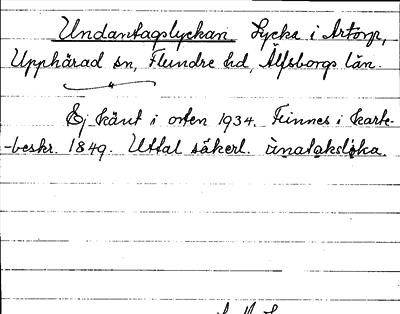 Undantagslyckan Lycka i Artorp,
Upphärad sn, Flundre hd, Älfsborgs län.
Ej känt i orten 1934. Finnes i karte-
-beskr. 1849. Uttal säkerl. ùnataksly̭ka.